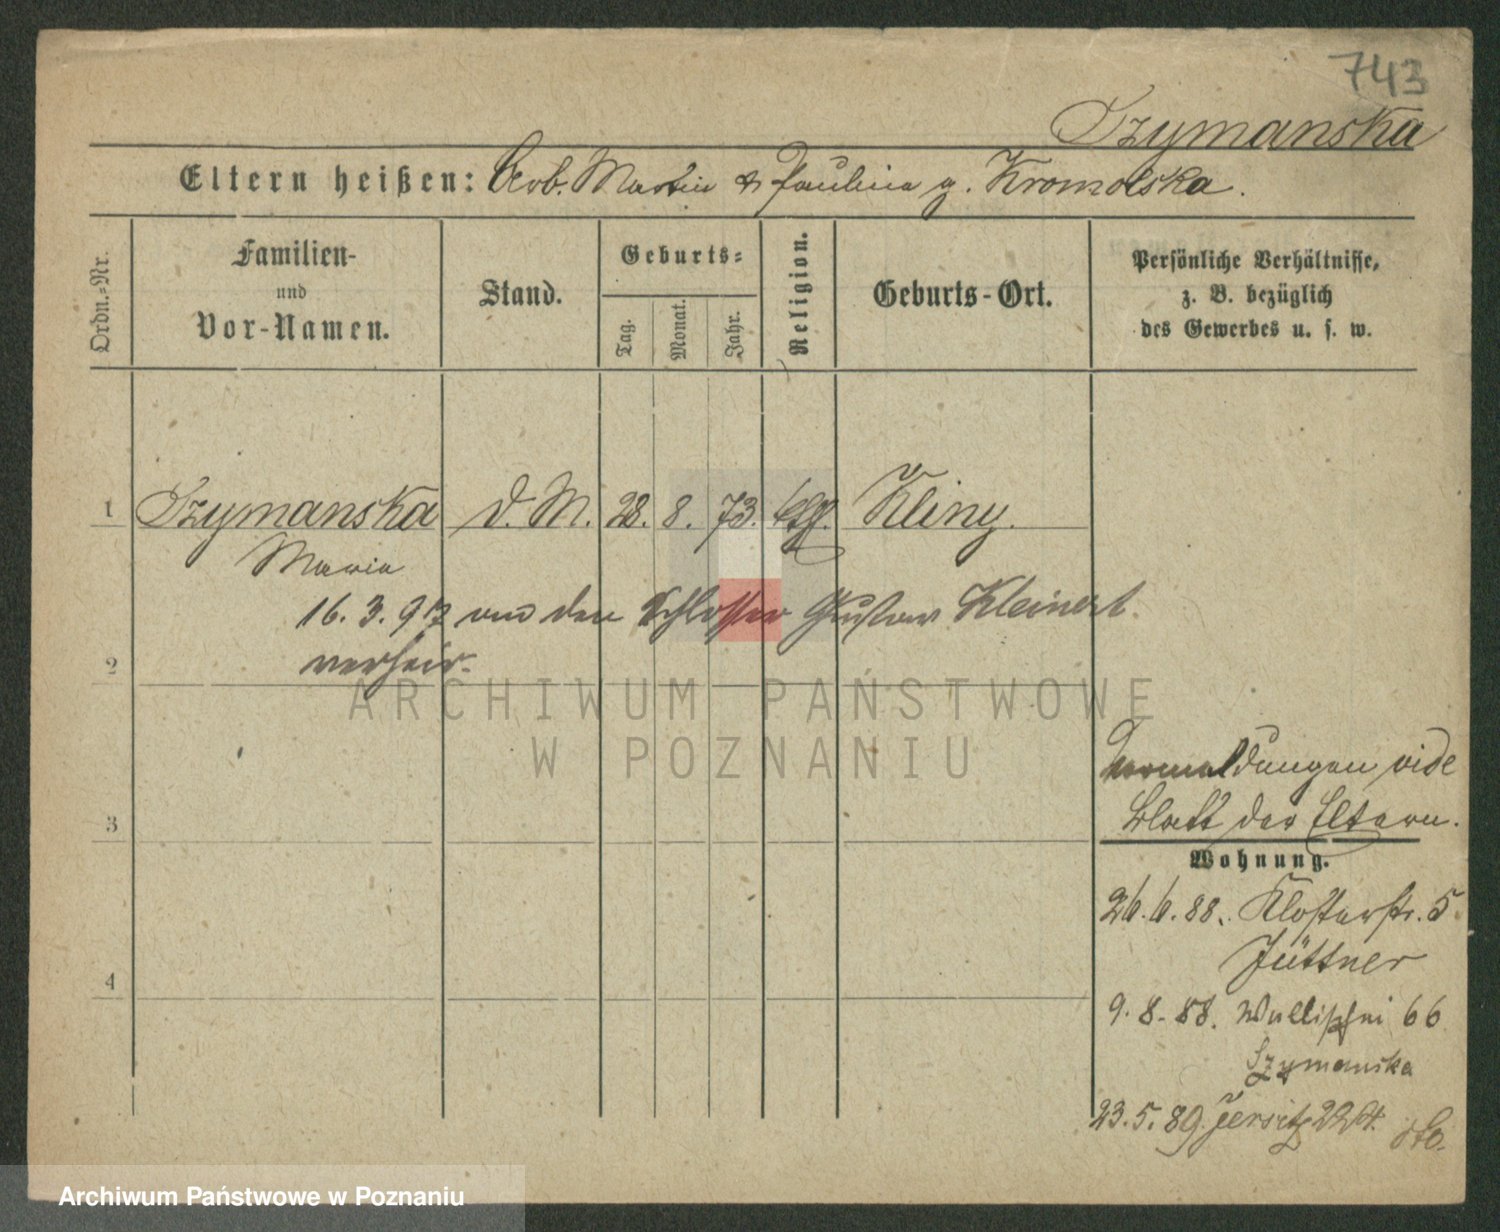 743
Szymanska
Eltern heißen: Arb. Martin & Paulina g. Kromolska.
Ordn.=Nr.
Familien-
und
Vor-Namen.
Stand.
Geburts=
Tag.
Monat.
Jahr.
Religion.
Geburts-Ort.
Persönliche Verhältnisse,
z. B. bezüglich
des Gewerbes u. s. w.
1 Szymanska d. M. 28. 8. 73. Kliny.
Maria
16. 3. 97 an den Schlosser Gustav Kleinert
verheir.
2
ARCHIWUM PAŃSTWOWE
W POZNANIU
vide
3 Blatt der Eltern.
Wohnung.
26.6.88. Klosterstr. 5
Jüttner
4
9.8.88. Wallischei 66
Szymanska
23.5.89. Jersitz
Archiwum Państwowe w Poznaniu